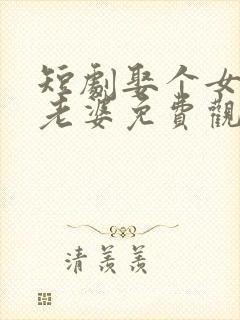 短劇娶个女
老婆免費觀
清羨羨